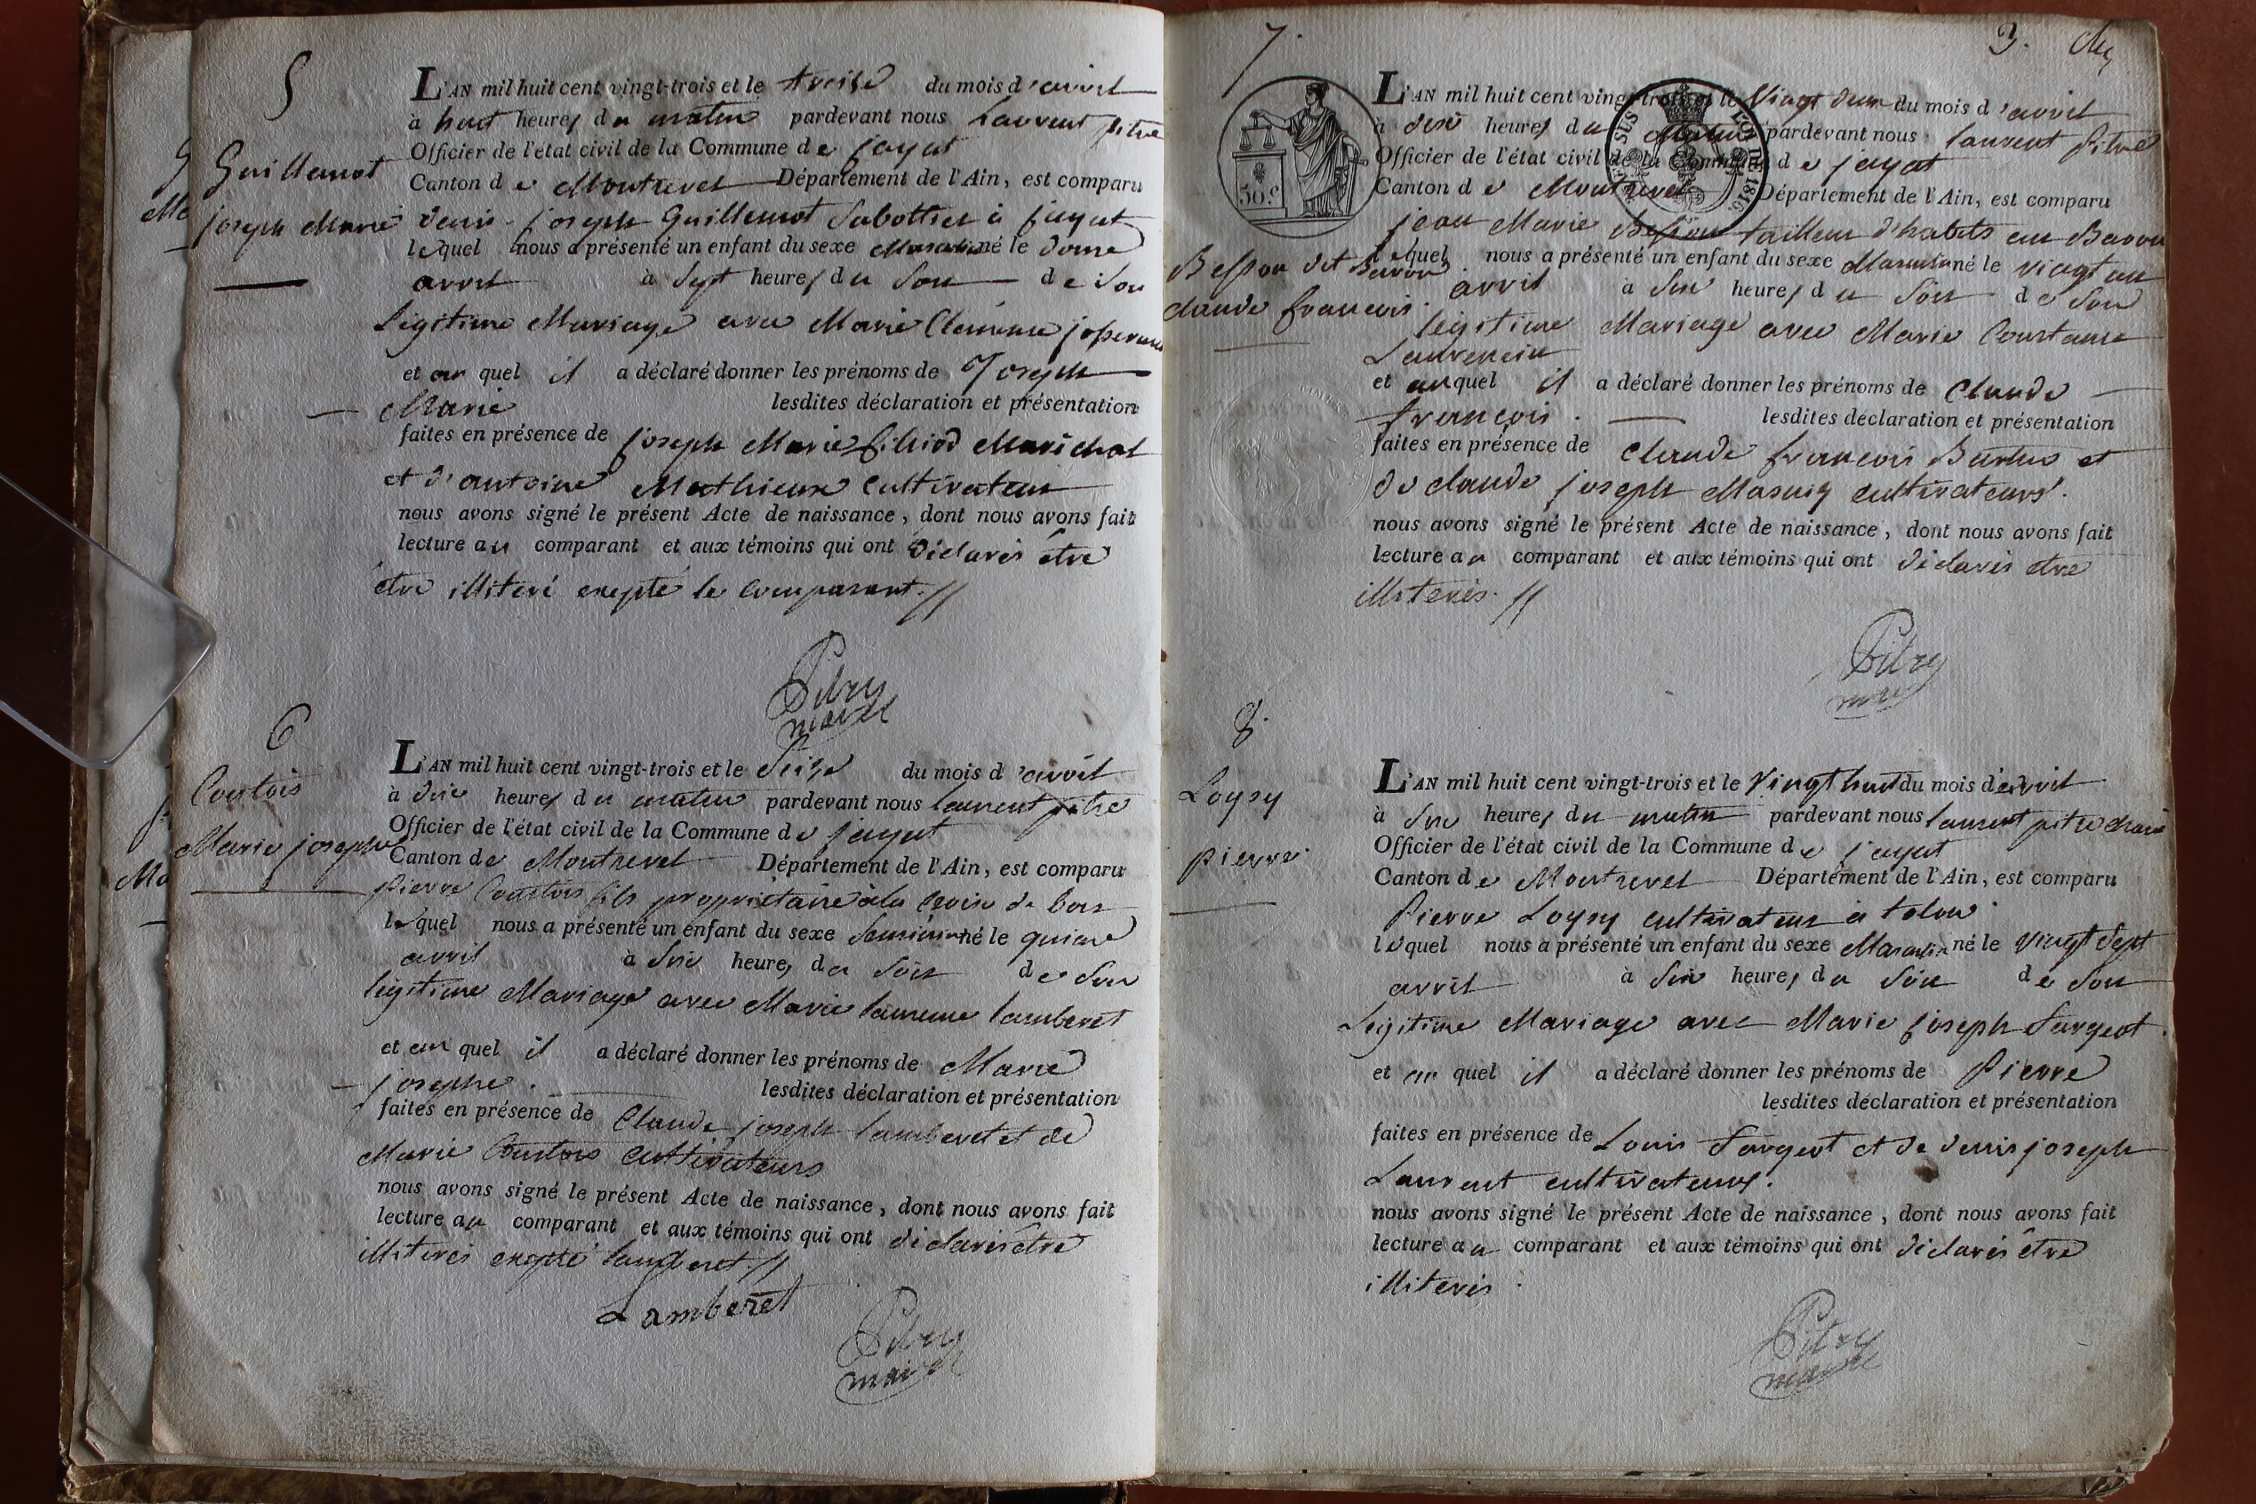 5
Guillemot
joseph Marie
L'AN mil huit cent vingt-trois et le treise du mois d'avril
à huit heures du matin pardevant nous Laurent pitre
Officier de l'etat civil de la Commune de jayat
Canton de Montrevel Département de l'Ain, est comparu
denis joseph Guillemot Sabottier à jayat
lequel nous a présenté un enfant du sexe Masculin né le douze
avril à Sept heures du Soir de Son
Légitime Mariage avec Marie Clemence josserand
et au quel il a déclaré donner les prénoms de Joseph
Marie lesdites déclaration et présentation
faites en présence de joseph Marie filliod Marichal
et d'antoine Mathieux Cultivateur
nous avons signé le présent Acte de naissance, dont nous avons fait
lecture au comparant et aux témoins qui ont déclarés être
être illiteré exepté le Comparant. //
Pitre
maire
6
Coutois
Marie josephe
L'AN mil huit cent vingt-trois et le Seize du mois d'avril
à dix heures du matin pardevant nous laurent pitre
Officier de l'état civil de la Commune de jayat
Canton de Montrevel Département de l'Ain, est comparu
pierre Coutois fils proprietaire à la Croix de bois
lequel nous a présenté un enfant du sexe feminin né le quinze
avril à Six heures du Soir de Son
légitime Mariage avec Marie laurence lamberet
et au quel il a déclaré donner les prénoms de Marie
josephe. lesdites déclaration et présentation
faites en présence de Claude joseph lamberet et de
Marie Coutois Cultivateurs
nous avons signé le présent Acte de naissance, dont nous avons fait
lecture au comparant et aux témoins qui ont déclarés être
illiterés exepté lamberet. //
Lamberet
Pitre
maire
7.
3.
50 c.
LOI DE 1816.
Besson dit Baron
claude françois.
L'AN mil huit cent vingt-trois et le Vingt deux du mois d'avril
à dix heures du Matin pardevant nous laurent Pitre
Officier de l'état civil de la Commune de jayat
Canton de Montrevel Département de l'Ain, est comparu
jean Marie Besson tailleur d'habits au Baron
lequel nous a présenté un enfant du sexe Masculin né le vingt un
avril à Six heures du Soir de Son
légitime Mariage avec Marie Constance
Laurencin
et au quel il a déclaré donner les prénoms de Claude
françois. lesdites declaration et présentation
faites en présence de Claude françois et
de claude joseph Masuy cultivateurs.
nous avons signé le présent Acte de naissance, dont nous avons fait
lecture au comparant et aux témoins qui ont déclarés être
illiterés. //
Pitre
maire
8.
Loysy
pierre.
L'AN mil huit cent vingt-trois et le Vingt huit du mois d'avril
à Six heures du matin pardevant nous laurent pitre maire
Officier de l'état civil de la Commune de jayat
Canton de Montrevel Département de l'Ain, est comparu
Pierre Loysy cultivateur à
lequel nous a présenté un enfant du sexe Masculin né le vingt Sept
avril à Six heures du Soir de Son
Legitime Mariage avec Marie joseph fargeot.
et au quel il a déclaré donner les prénoms de Pierre
lesdites déclaration et présentation
faites en présence de Louis fargeot et de denis joseph
Laurent cultivateurs.
nous avons signé le présent Acte de naissance, dont nous avons fait
lecture au comparant et aux témoins qui ont déclarés être
illiterés.
Pitre
maire